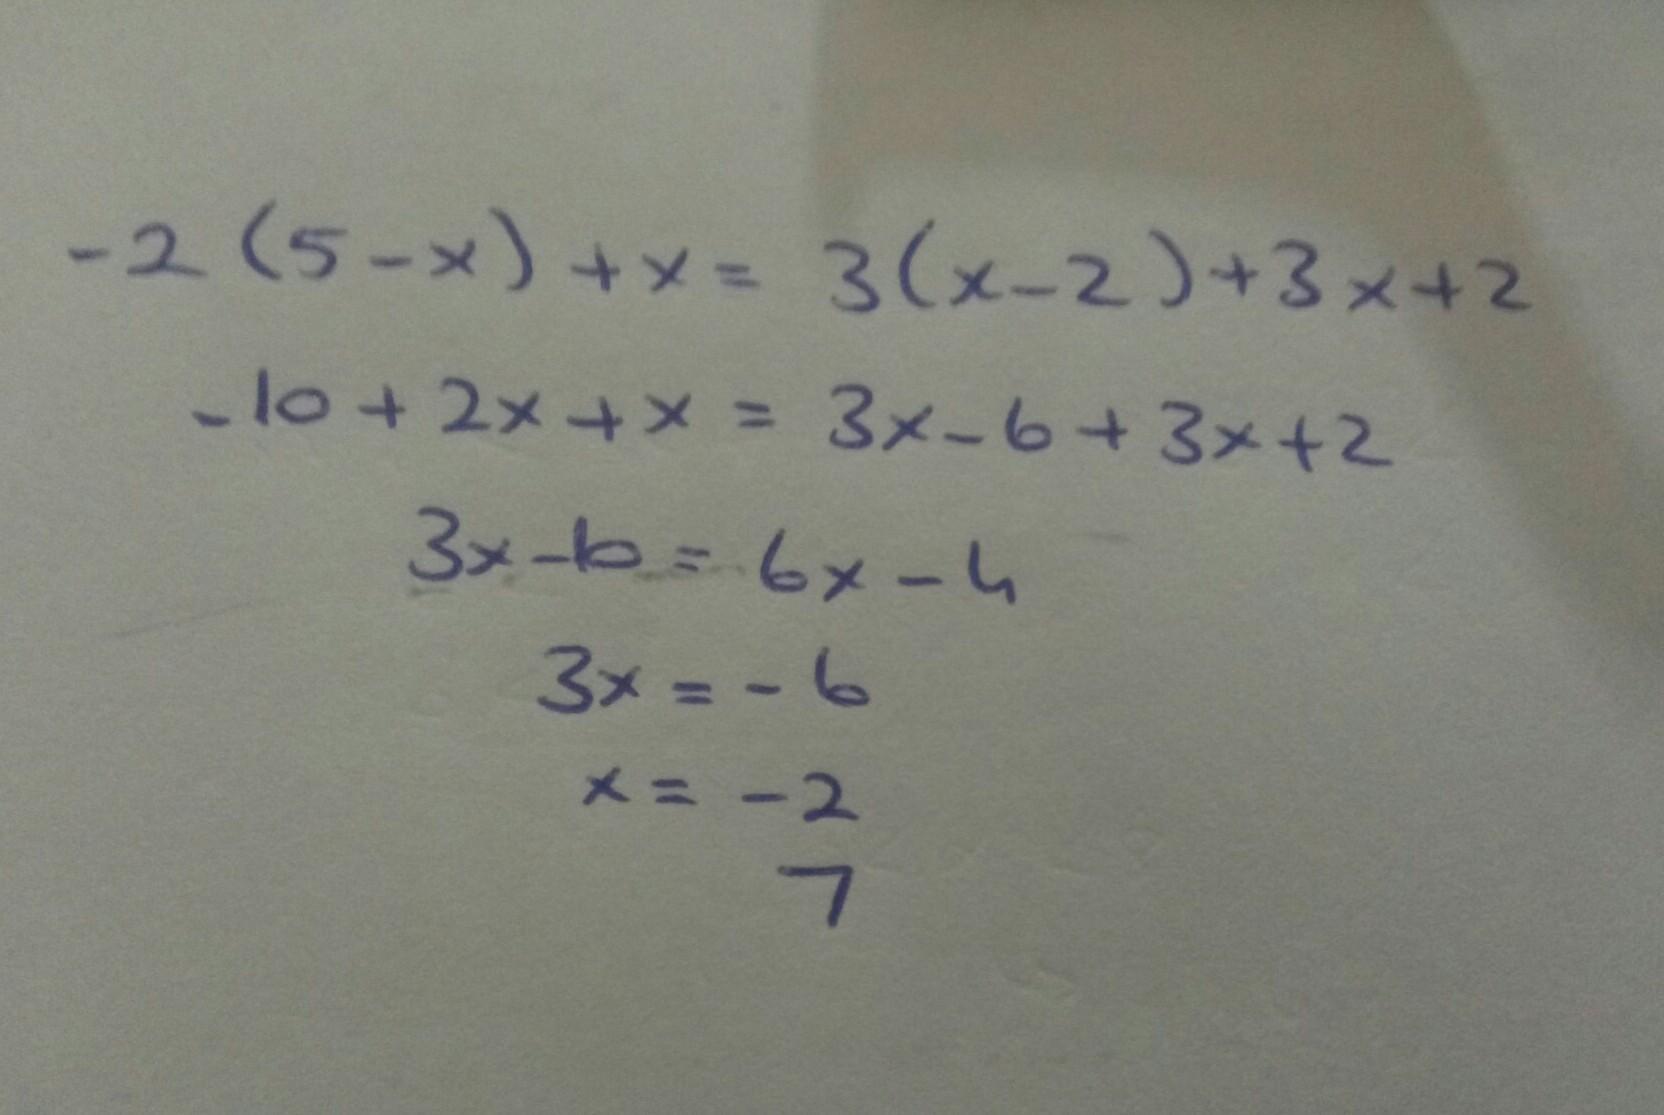 -2(5-x)+x=3(x-2)+3x+2
-10+2x+x=3x-6+3x+2
3x-10=6x-4
3x=-6
x=-2
7